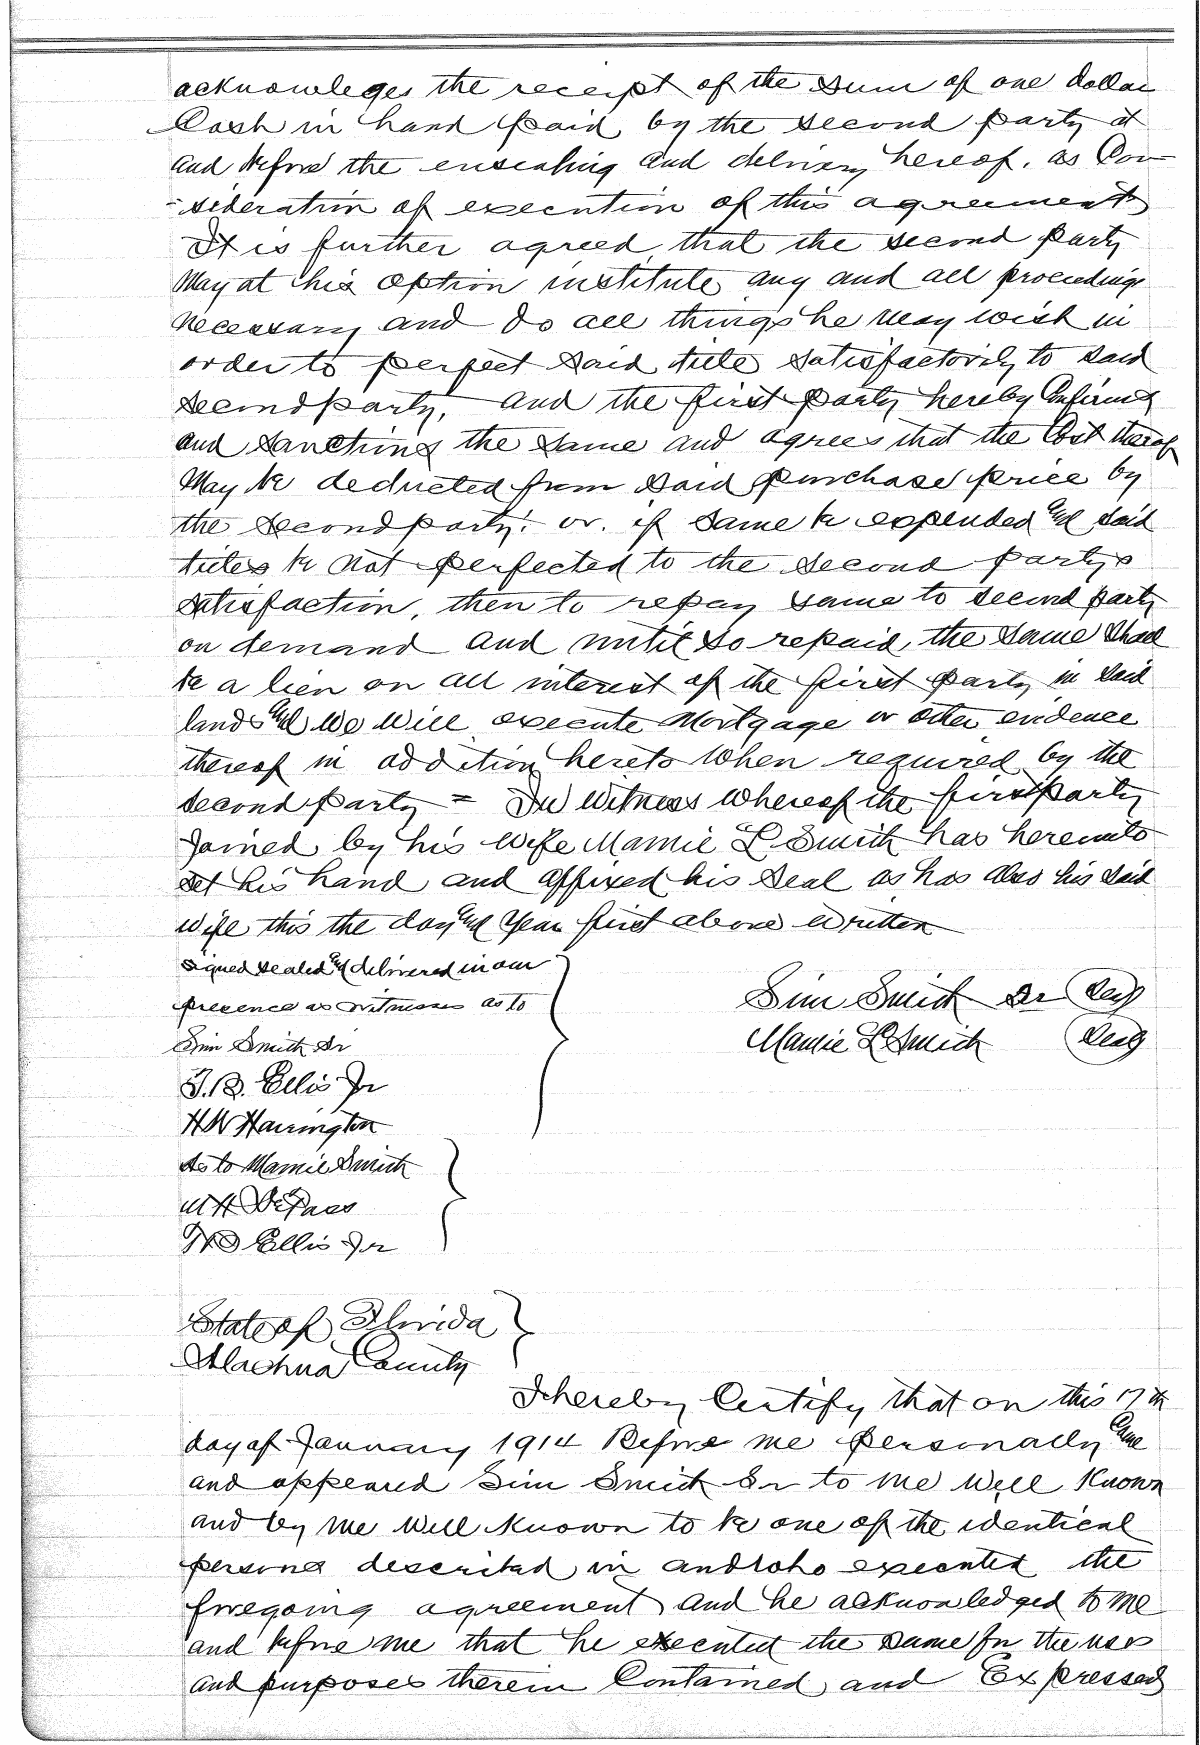 acknowleges the receipt of the sum of one dollar
Cash in hand paid by the second party at
and before the ensealing and delivery hereof. as Con-
-sideration of execution of this agreement
It is further agreed that the second party
May at his option institute any and all proceedings
necessary and do all things he may wish in
order to perfect said title satisfactorily to said
second party, and the first party hereby Confirms
and sanctions the same and agrees that the Cost thereof
May be deducted from said purchase price by
the second party: or. if same be expended and said
titles be not perfected to the second partys
satisfaction, then to repay same to second party
on demand and until so repaid, the same shall
be a lien on all interest of the first party in said
lands and we will execute Mortgage or other evidence
thereof in addition hereto when required by the
second party = In witness whereof the first party
Joined by his wife Mamie L Smith has hereunto
set his hand and affixed his seal as has also his said
wife this the day and year first above written
signed sealed and delivered in our
presence as witnesses as to
Sim Smith Sr
Sim Smith Sr Seal
Mamie L Smith Seal
T.B. Ellis Jr
H W Harrington
As to Mamie Smith
W H DePass
T B Ellis Jr
State of Florida
Alachua County
I hereby Certify that on this 17th
day of January 1914 Before me personally Came
and appeared Sim Smith Sr to me well Known
and by me well Known to be one of the identical
persons described in and who executed the
foregoing agreement and he acknowledged to me
and before me that he executed the same for the uses
and purposes therein Contained and Expressed